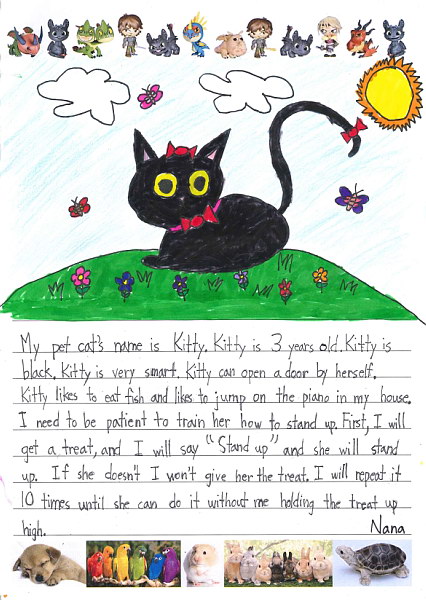 My pet cat's name is Kitty. Kitty is 3 years old. Kitty is
black. Kitty is very smart. Kitty can open a door by herself.
Kitty likes to eat fish and likes to jump on the piano in my house.
I need to be patient to train her how to stand up. First, I will
get a treat, and I will say "Stand up" and she will stand
up. If she doesn't I won't give her the treat. I will repeat it
10 times until she can do it without me holding the treat up
high. Nana